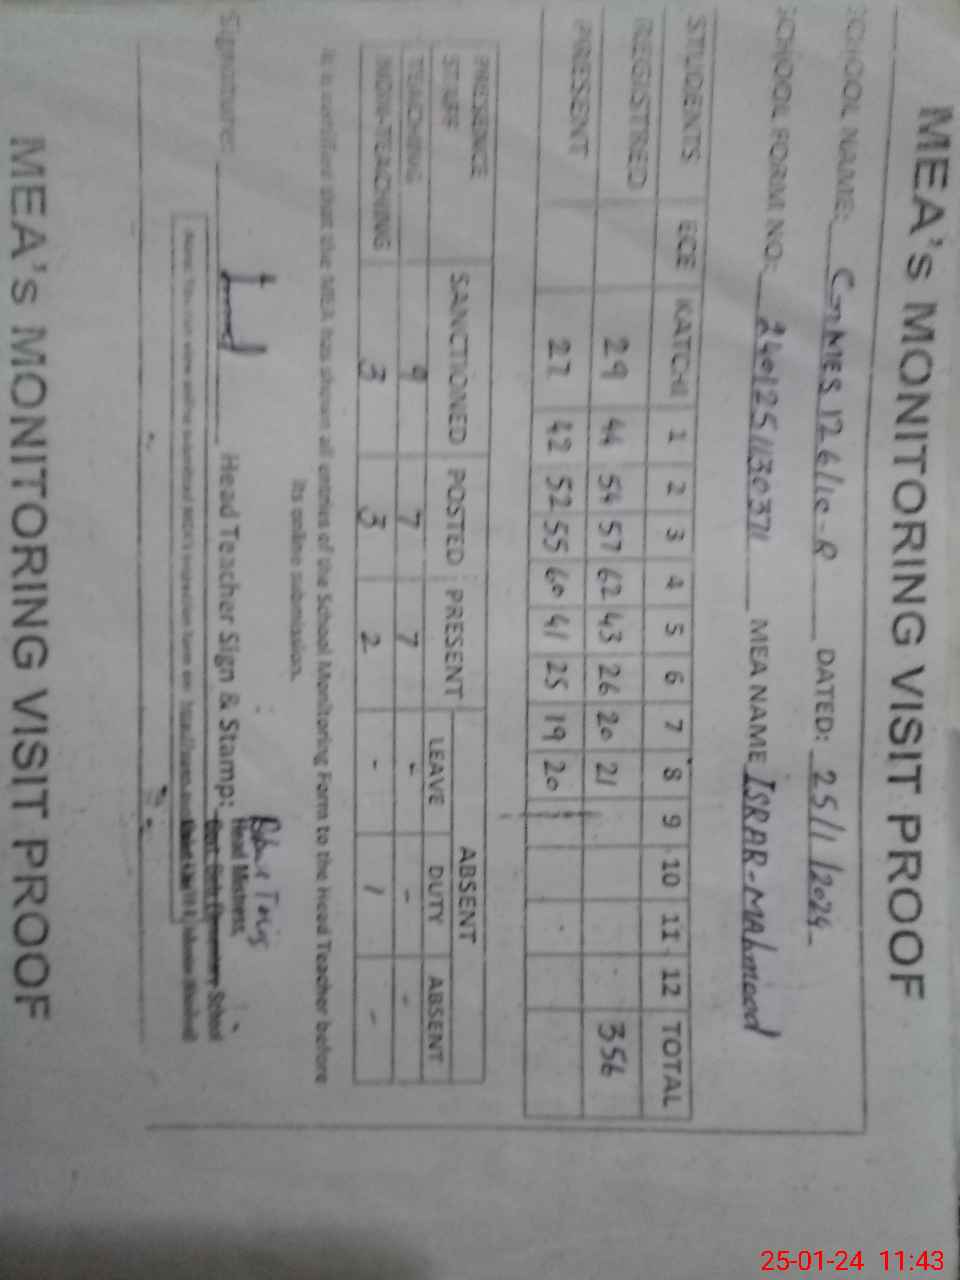 MEA's MONITORING VISIT PROOF
SCHOOL NAME: GGMES 126/10-R DATED: 25/1/2024
SCHOOL FORM NO: 2401251130371 MEA NAME ISRAR-MAhmood
STUDENTS ECE KATCHI 1 2 3 4 5 6 7 8 9 10 11 12 TOTAL
REGISTRED 29 44 54 57 62 43 26 20 21 356
PRESENT 27 42 52 55 60 41 25 19 20
PRESENCE STAFF SANCTIONED POSTED PRESENT ABSENT
LEAVE DUTY ABSENT
TEACHING 9 7 7 - - -
NONN-TEACHING 3 3 2 - 1 -
It is verified that the MEA has shown all entries of the School Monitoring Form to the Head Teacher before
its online submission.
Signature: Head Teacher Sign & Stamp:
Head Mistress
School
MEA's MONITORING VISIT PROOF
25-01-24 11:43